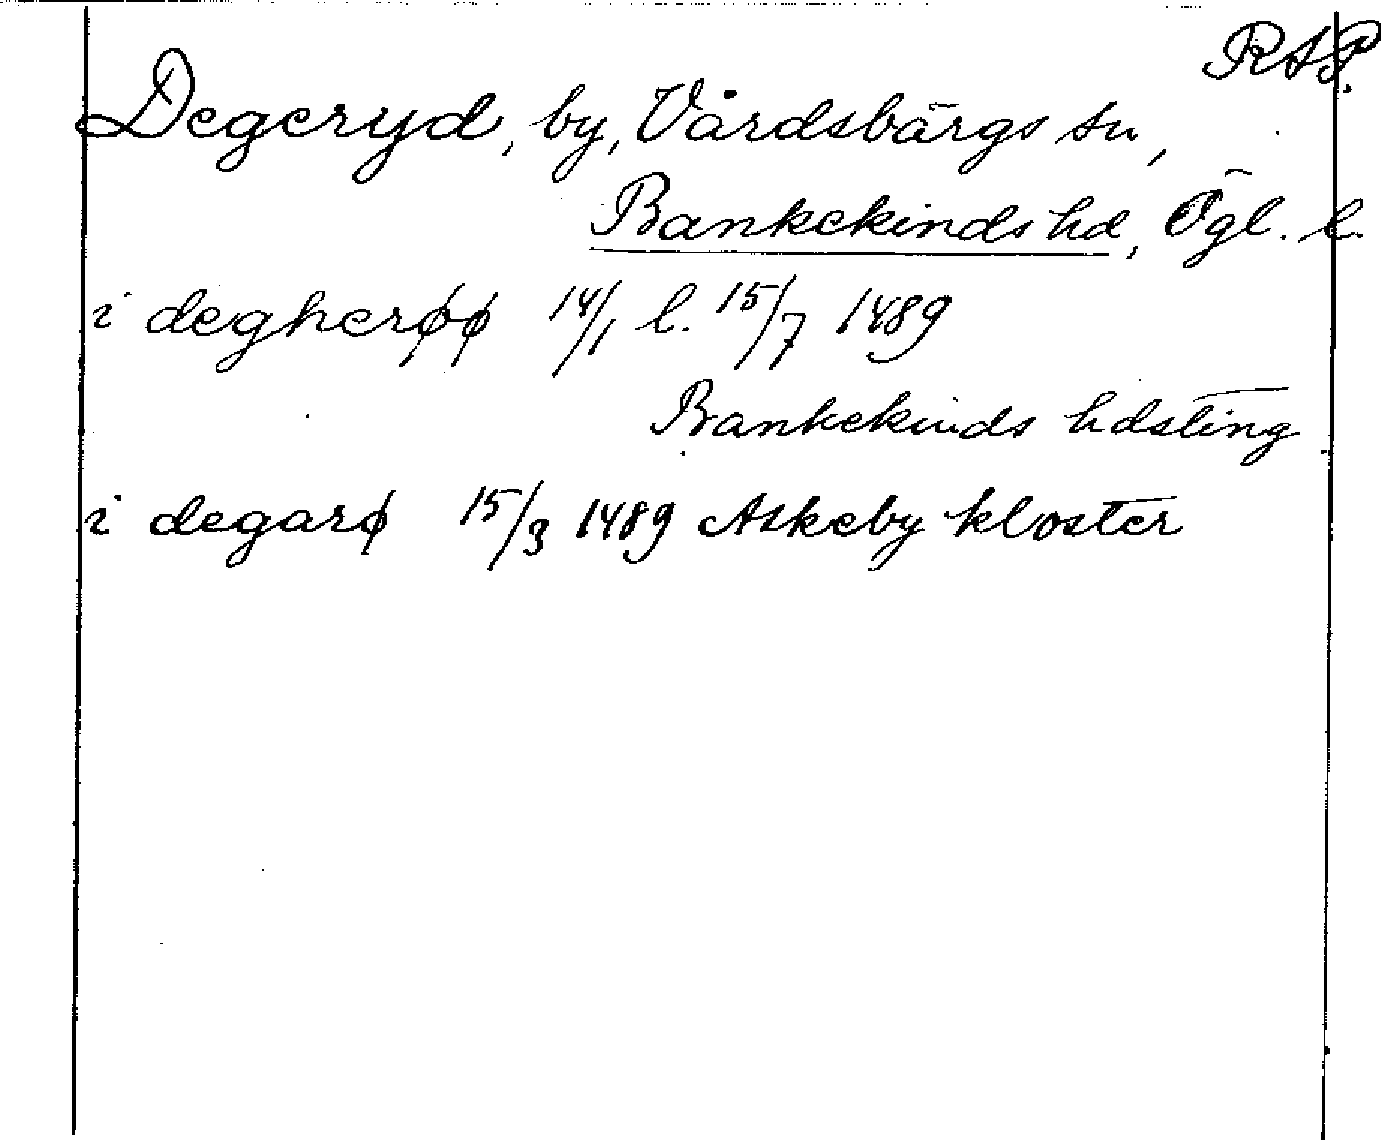 RAP.
Degeryd, by, Vårdsbärgs sn,
Bankekinds hd, Ögl. l.
i degherøø 14/1 l. 15/7 1489
Bankekinds hdsting
i degarø 15/3 1489 Askeby kloster